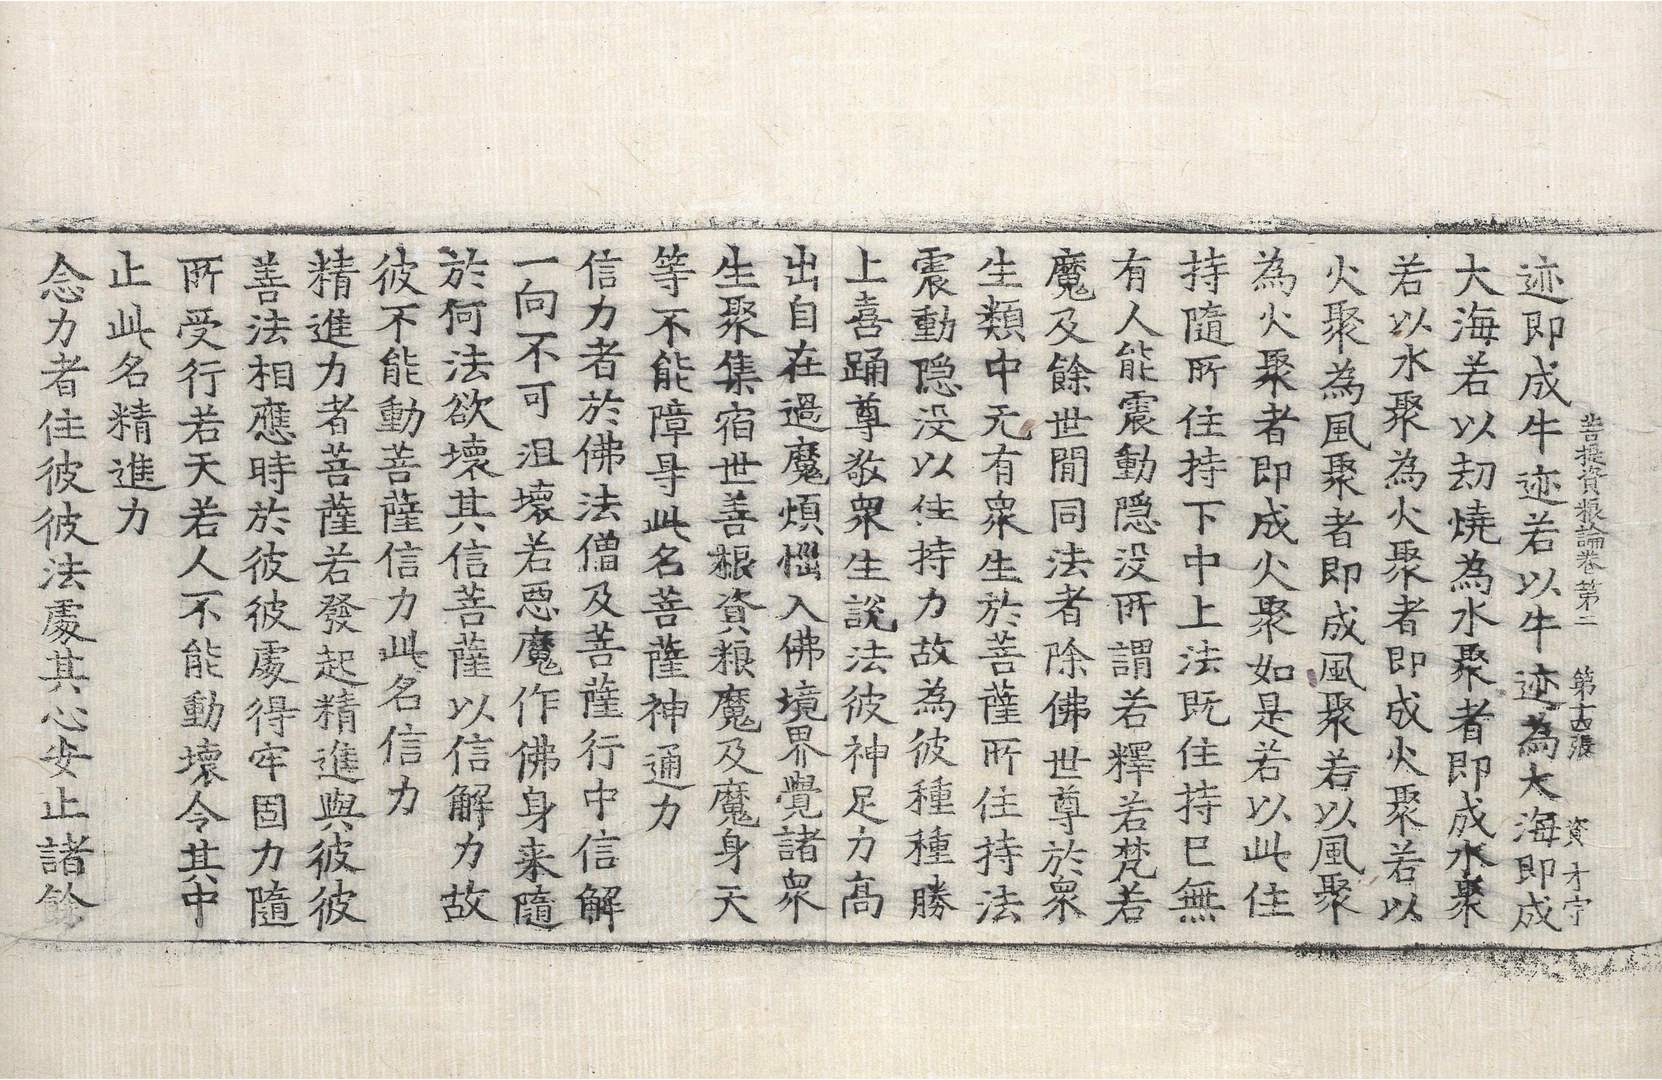 菩提資粮論卷第二　第十四張　資　才宁
迹即成牛迹若以牛迹為大海即成
大海若以劫燒為水聚者即成水聚
若以水聚為火聚者即成火聚若以
火聚為風聚者即成風聚若以風聚
為火聚者即成火聚如是若以此住
持隨所住持下中上法既住持已無
有人能震動隐没所謂若釋若梵若
魔及餘世間同法者除佛世尊於衆
生類中无有衆生於菩薩所住持法
震動隐没以住持力故為彼種種勝
上喜踊尊敬衆生說法彼神足力高
出自在過魔煩惱入佛境界覺諸衆
生聚集宿世善根資粮魔及魔身天
等不能障㝵此名菩薩神通力
信力者於佛法僧及菩薩行中信解
一向不可沮壞若惡魔作佛身来隨
於何法欲壞其信菩薩以信解力故
彼不能動菩薩信力此名信力
精進力者菩薩若發起精進與彼彼
善法相應時於彼彼處得牢固力隨
所受行若天若人不能動壞令其中
止此名精進力
念力者住彼彼法處其心安止諸餘